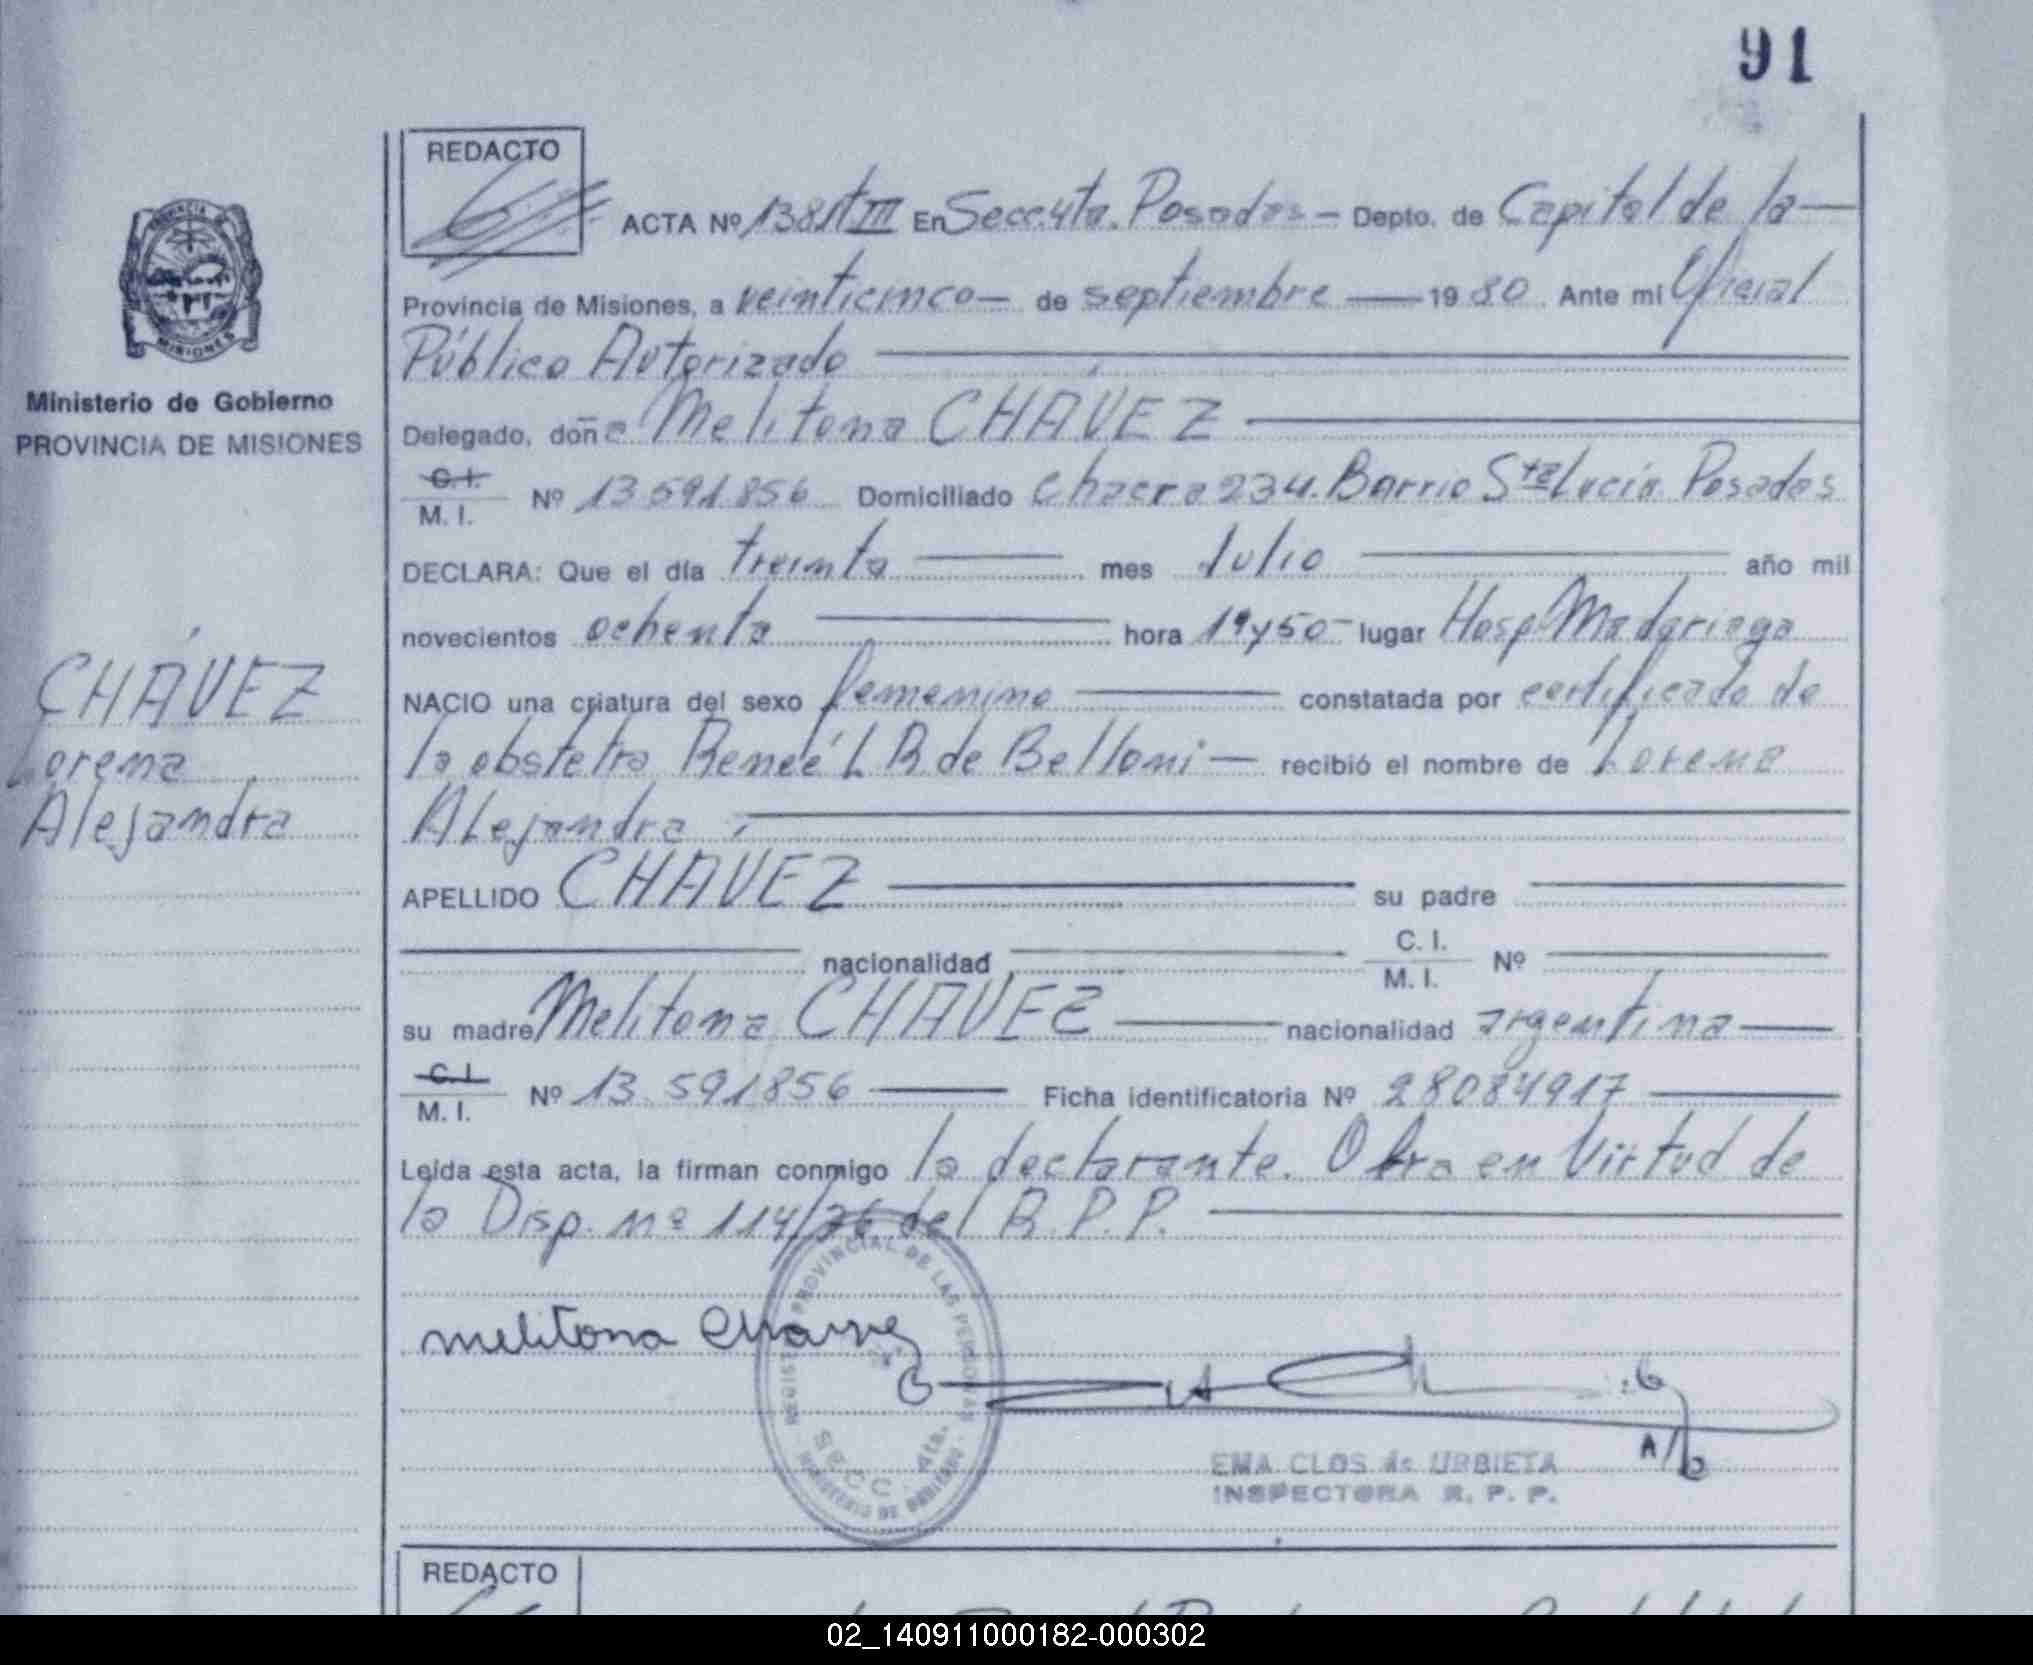 91
REDACTO
ACTA Nº 1381 t III En Secc. 4ta. Posadas – Depto. de Capital de la —
Provincia de Misiones, a veinticinco — de septiembre — 1980. Ante mi Oficial
Público Autorizado
Delegado, doña Melitona CHÁVEZ
C.I.
M. I. Nº 13.591.856 Domiciliado Chacra 234. Barrio Sta Lucía Posadas
DECLARA: Que el día treinta — mes Julio — año mil
novecientos ochenta — hora 19 y 50 – lugar Hosp. Madariaga
NACIO una criatura del sexo femenino — constatada por certificado de
la obstetra Reneé L R de Belloni — recibió el nombre de Lorena
Alejandra
APELLIDO CHAVEZ — su padre —
nacionalidad — C. I.
M. I. Nº —
su madre Melitona CHAVEZ — nacionalidad argentina —
C.I.
M. I. Nº 13.591856 — Ficha identificatoria Nº 28084917 —
Leída esta acta, la firman conmigo la declarante. Obra en Virtud de
la Disp. nº 114/76 del R.P.P.
melitona Chavez
REGISTRO PROVINCIAL DE LAS PERSONAS
SECC. 4ta.
MINISTERIO DE GOBIERNO
EMA CLOS de URBIETA
INSPECTORA R. P. P.
REDACTO
PROVINCIA DE
MISIONES
Ministerio de Gobierno
PROVINCIA DE MISIONES
CHÁVEZ
Lorena
Alejandra
02_140911000182-000302